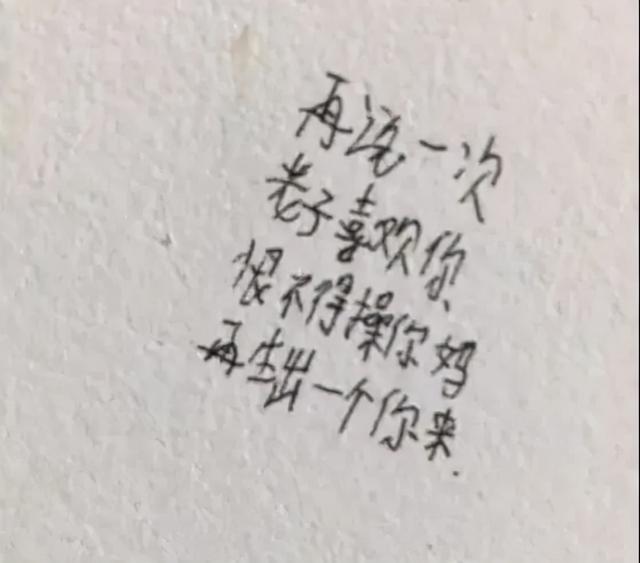 再说一次
老子喜欢你
恨不得操你妈
再生出一个你来.